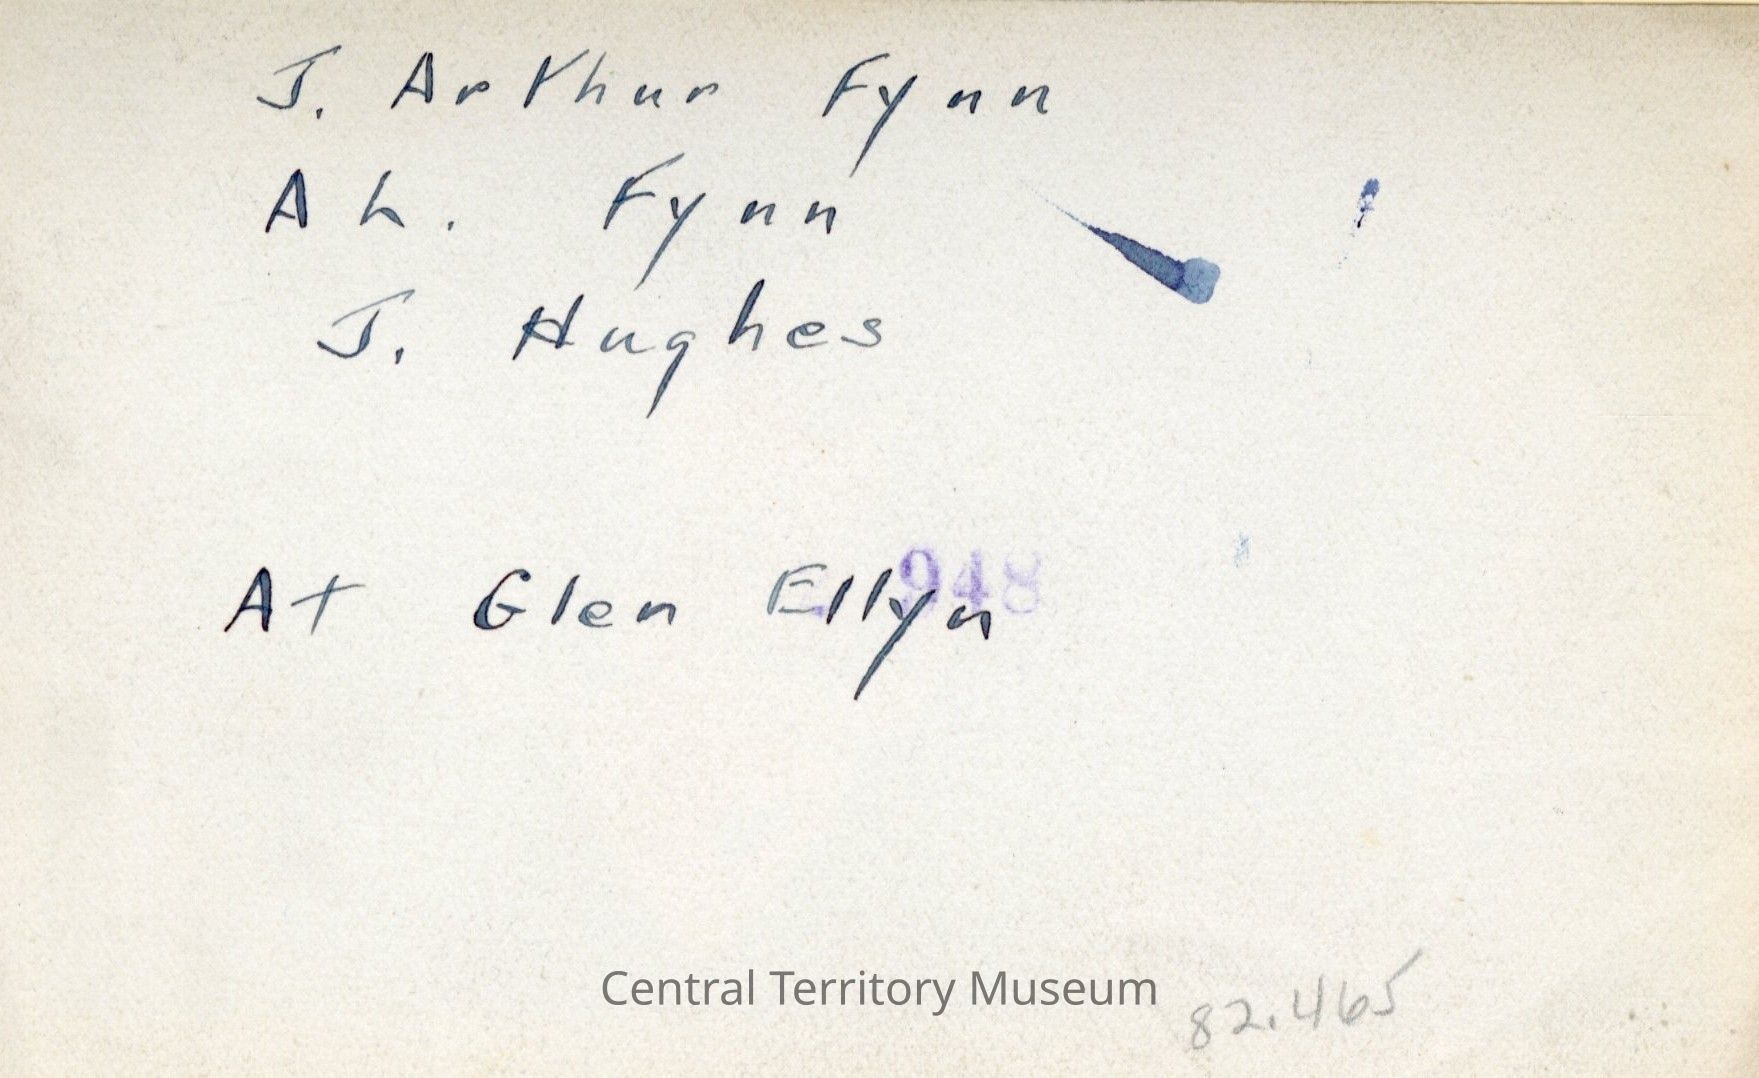 J. Arthur Fynn
A L. Fynn
J. Hughes
948
At Glen Ellyn
Central Territory Museum
82.465